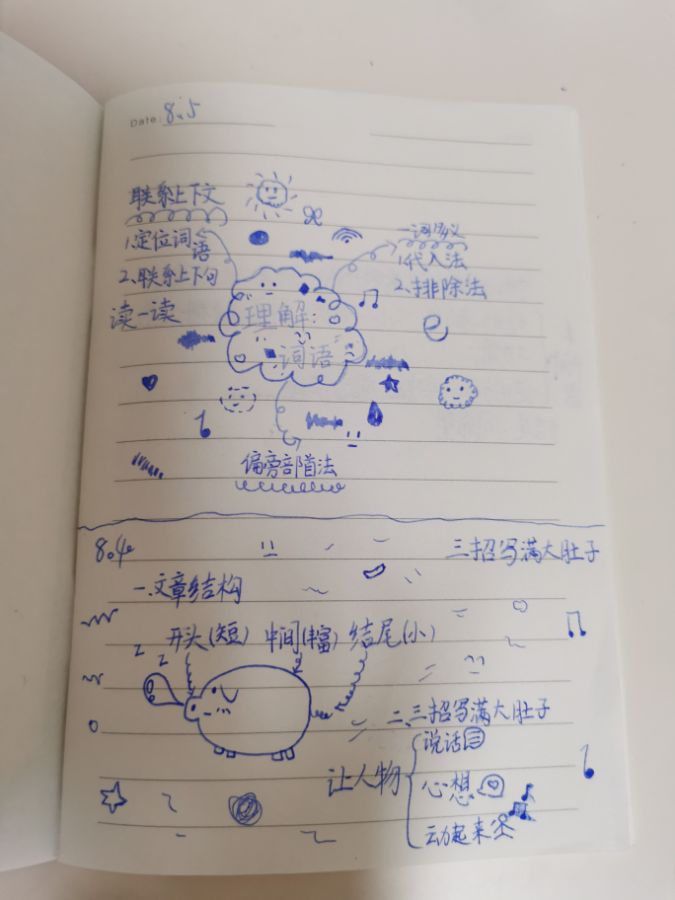 Date: 8.5
联系上下文
1.定位词语
2.联系上下句
读一读
一词多义
1.代入法
2.排除法
理解:
词语
偏旁部首法
8.4
三招写满大肚子
一.文章结构
开头(短) 中间(丰富) 结尾(小)
z z
二、三招写满大肚子
让人物
说话
心想
动起来